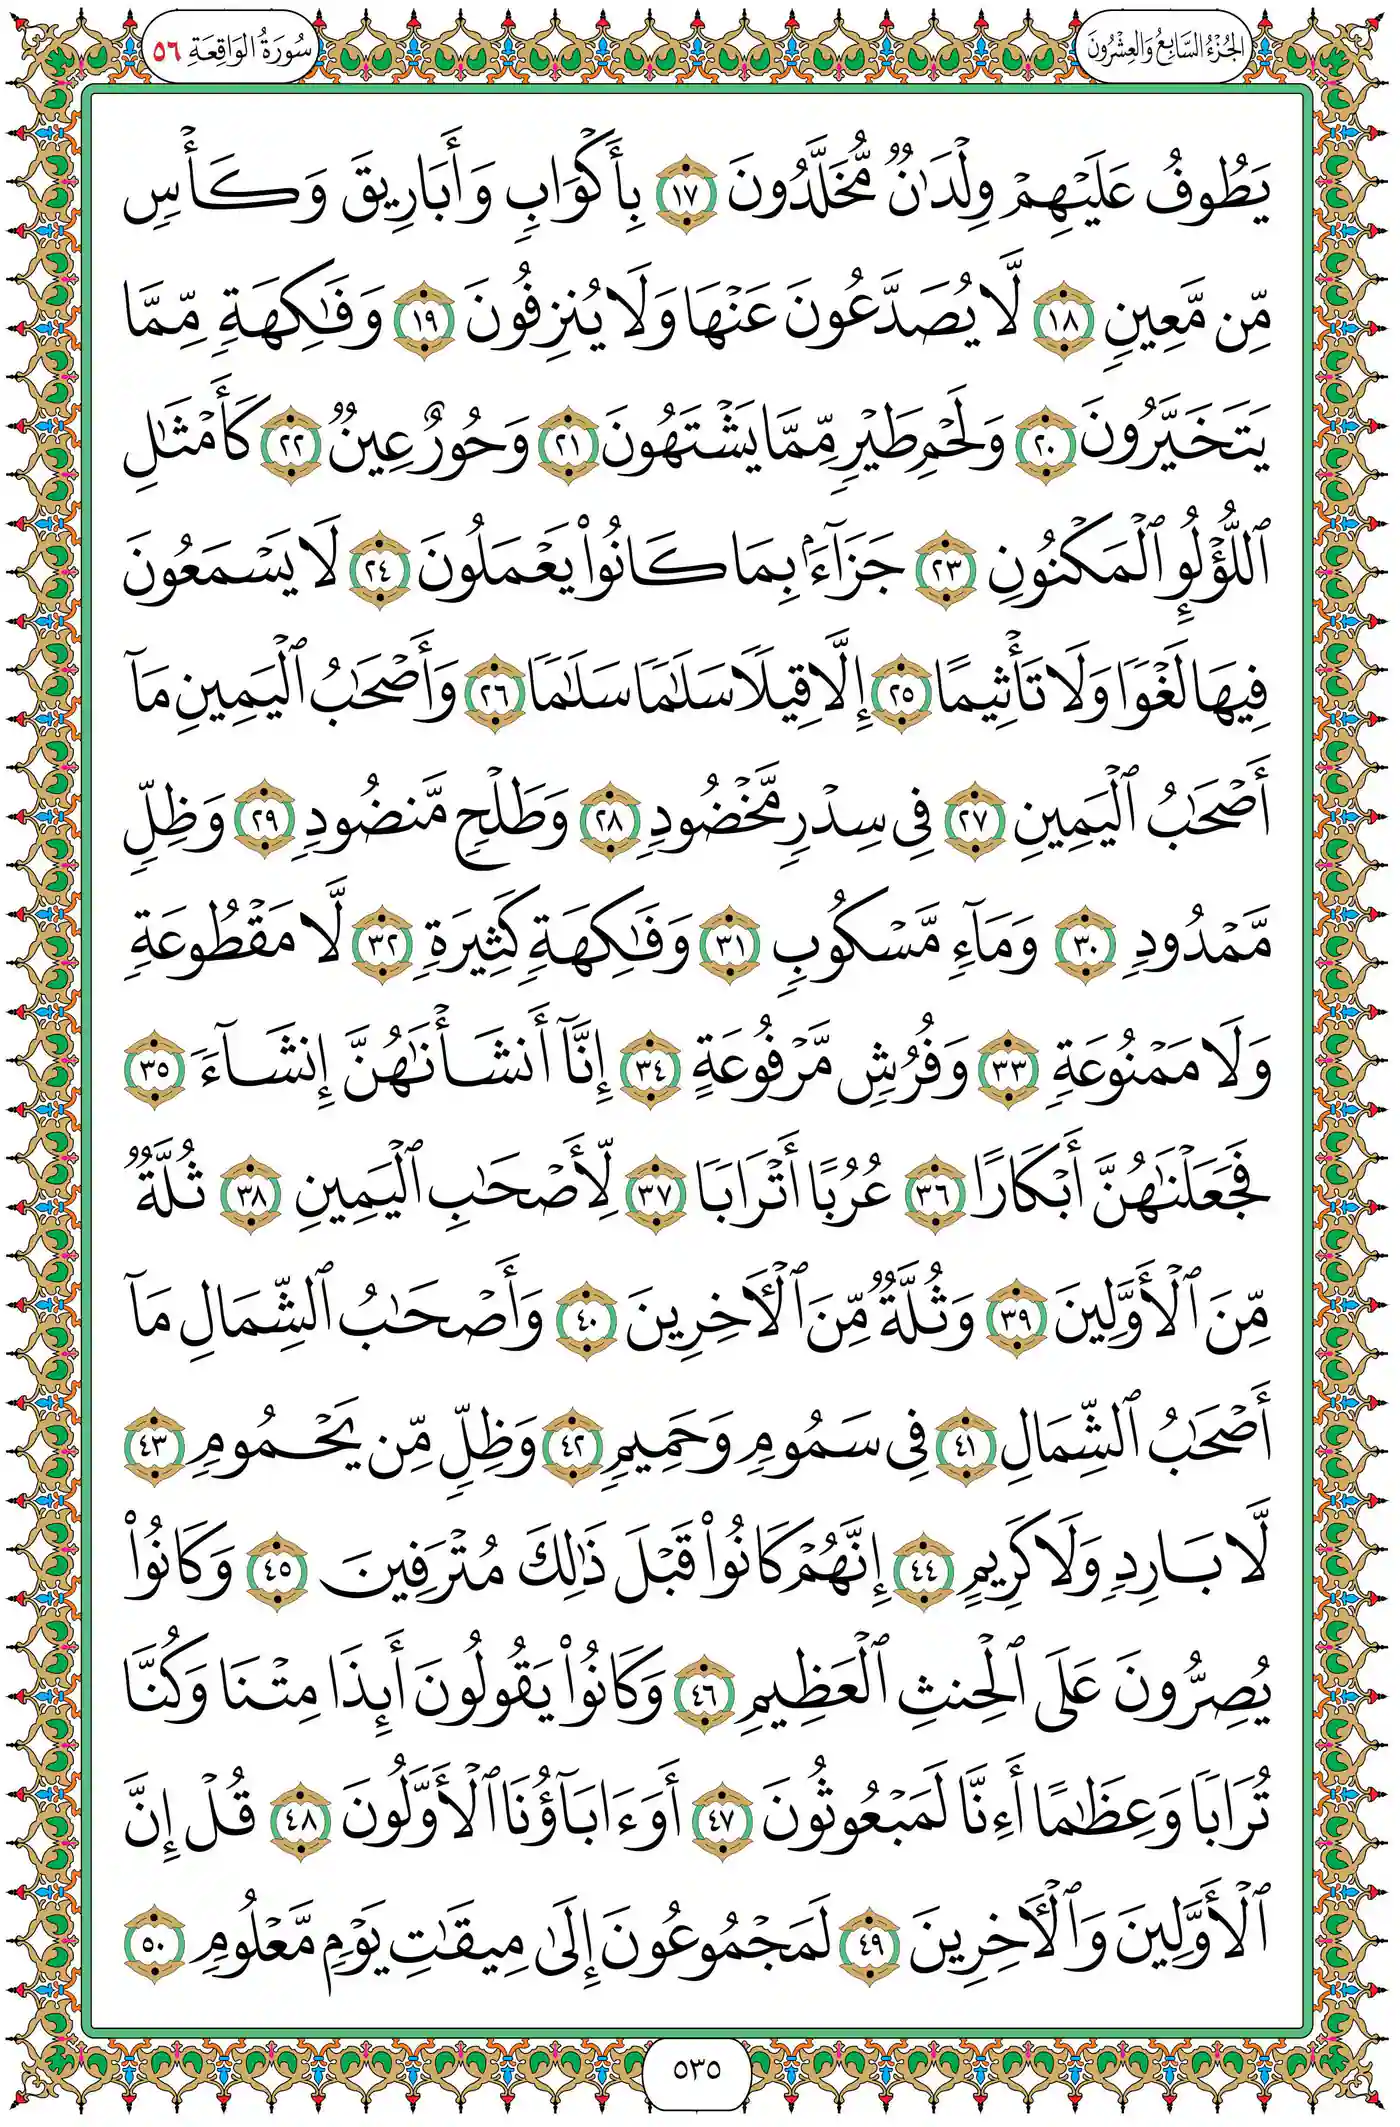 الجُزْءُ السَّابِعُ وَالعِشْرُونَ
سُورَةُ الوَاقِعَةِ ٥٦
يَطُوفُ عَلَيْهِمْ وِلْدَٰنٌ مُّخَلَّدُونَ ١٧ بِأَكْوَابٍ وَأَبَارِيقَ وَكَأْسٍ
مِّن مَّعِينٍ ١٨ لَّا يُصَدَّعُونَ عَنْهَا وَلَا يُنزِفُونَ ١٩ وَفَٰكِهَةٍ مِّمَّا
يَتَخَيَّرُونَ ٢٠ وَلَحْمِ طَيْرٍ مِّمَّا يَشْتَهُونَ ٢١ وَحُورٌ عِينٌ ٢٢ كَأَمْثَٰلِ
ٱللُّؤْلُؤِ ٱلْمَكْنُونِ ٢٣ جَزَآءًۢ بِمَا كَانُوا۟ يَعْمَلُونَ ٢٤ لَا يَسْمَعُونَ
فِيهَا لَغْوًا وَلَا تَأْثِيمًا ٢٥ إِلَّا قِيلًا سَلَٰمًا سَلَٰمًا ٢٦ وَأَصْحَٰبُ ٱلْيَمِينِ مَآ
أَصْحَٰبُ ٱلْيَمِينِ ٢٧ فِى سِدْرٍ مَّخْضُودٍ ٢٨ وَطَلْحٍ مَّنضُودٍ ٢٩ وَظِلٍّ
مَّمْدُودٍ ٣٠ وَمَآءٍ مَّسْكُوبٍ ٣١ وَفَٰكِهَةٍ كَثِيرَةٍ ٣٢ لَّا مَقْطُوعَةٍ
وَلَا مَمْنُوعَةٍ ٣٣ وَفُرُشٍ مَّرْفُوعَةٍ ٣٤ إِنَّآ أَنشَأْنَٰهُنَّ إِنشَآءً ٣٥
فَجَعَلْنَٰهُنَّ أَبْكَارًا ٣٦ عُرُبًا أَتْرَابًا ٣٧ لِّأَصْحَٰبِ ٱلْيَمِينِ ٣٨ ثُلَّةٌ
مِّنَ ٱلْأَوَّلِينَ ٣٩ وَثُلَّةٌ مِّنَ ٱلْـَٔاخِرِينَ ٤٠ وَأَصْحَٰبُ ٱلشِّمَالِ مَآ
أَصْحَٰبُ ٱلشِّمَالِ ٤١ فِى سَمُومٍ وَحَمِيمٍ ٤٢ وَظِلٍّ مِّن يَحْمُومٍ ٤٣
لَّا بَارِدٍ وَلَا كَرِيمٍ ٤٤ إِنَّهُمْ كَانُوا۟ قَبْلَ ذَٰلِكَ مُتْرَفِينَ ٤٥ وَكَانُوا۟
يُصِرُّونَ عَلَى ٱلْحِنثِ ٱلْعَظِيمِ ٤٦ وَكَانُوا۟ يَقُولُونَ أَئِذَا مِتْنَا وَكُنَّا
تُرَابًا وَعِظَٰمًا أَءِنَّا لَمَبْعُوثُونَ ٤٧ أَوَءَابَآؤُنَا ٱلْأَوَّلُونَ ٤٨ قُلْ إِنَّ
ٱلْأَوَّلِينَ وَٱلْـَٔاخِرِينَ ٤٩ لَمَجْمُوعُونَ إِلَىٰ مِيقَٰتِ يَوْمٍ مَّعْلُومٍ ٥٠
٥٣٥